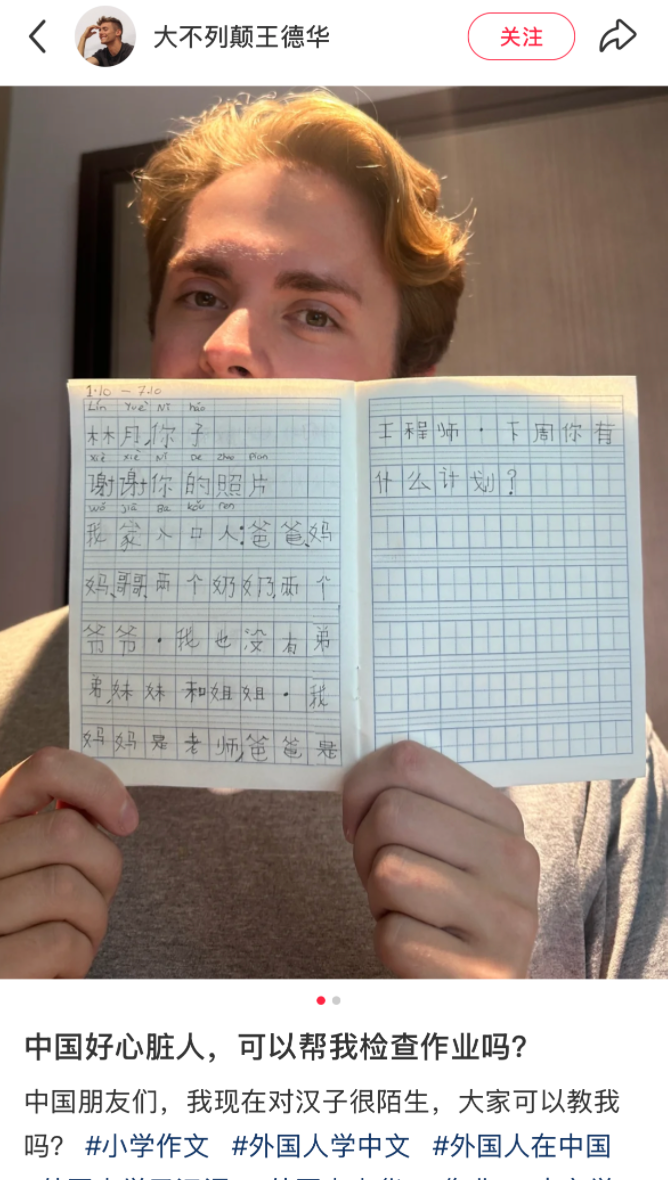 大不列颠王德华
关注
1.10 - 7.10
Lín Yuè Nǐ hǎo
林月,你子
xiè xiè Nǐ De zhao Pian
谢谢你的照片
wǒ jiā Ba kǒu ren
我家入口人:爸爸、妈
妈、哥哥、两个奶奶、两个
爷爷.我也没有弟
弟,妹妹和姐姐.我
妈妈是老师,爸爸是
工程师.下周你有
什么计划?
中国好心脏人，可以帮我检查作业吗？
中国朋友们，我现在对汉子很陌生，大家可以教我
吗？ #小学作文 #外国人学中文 #外国人在中国